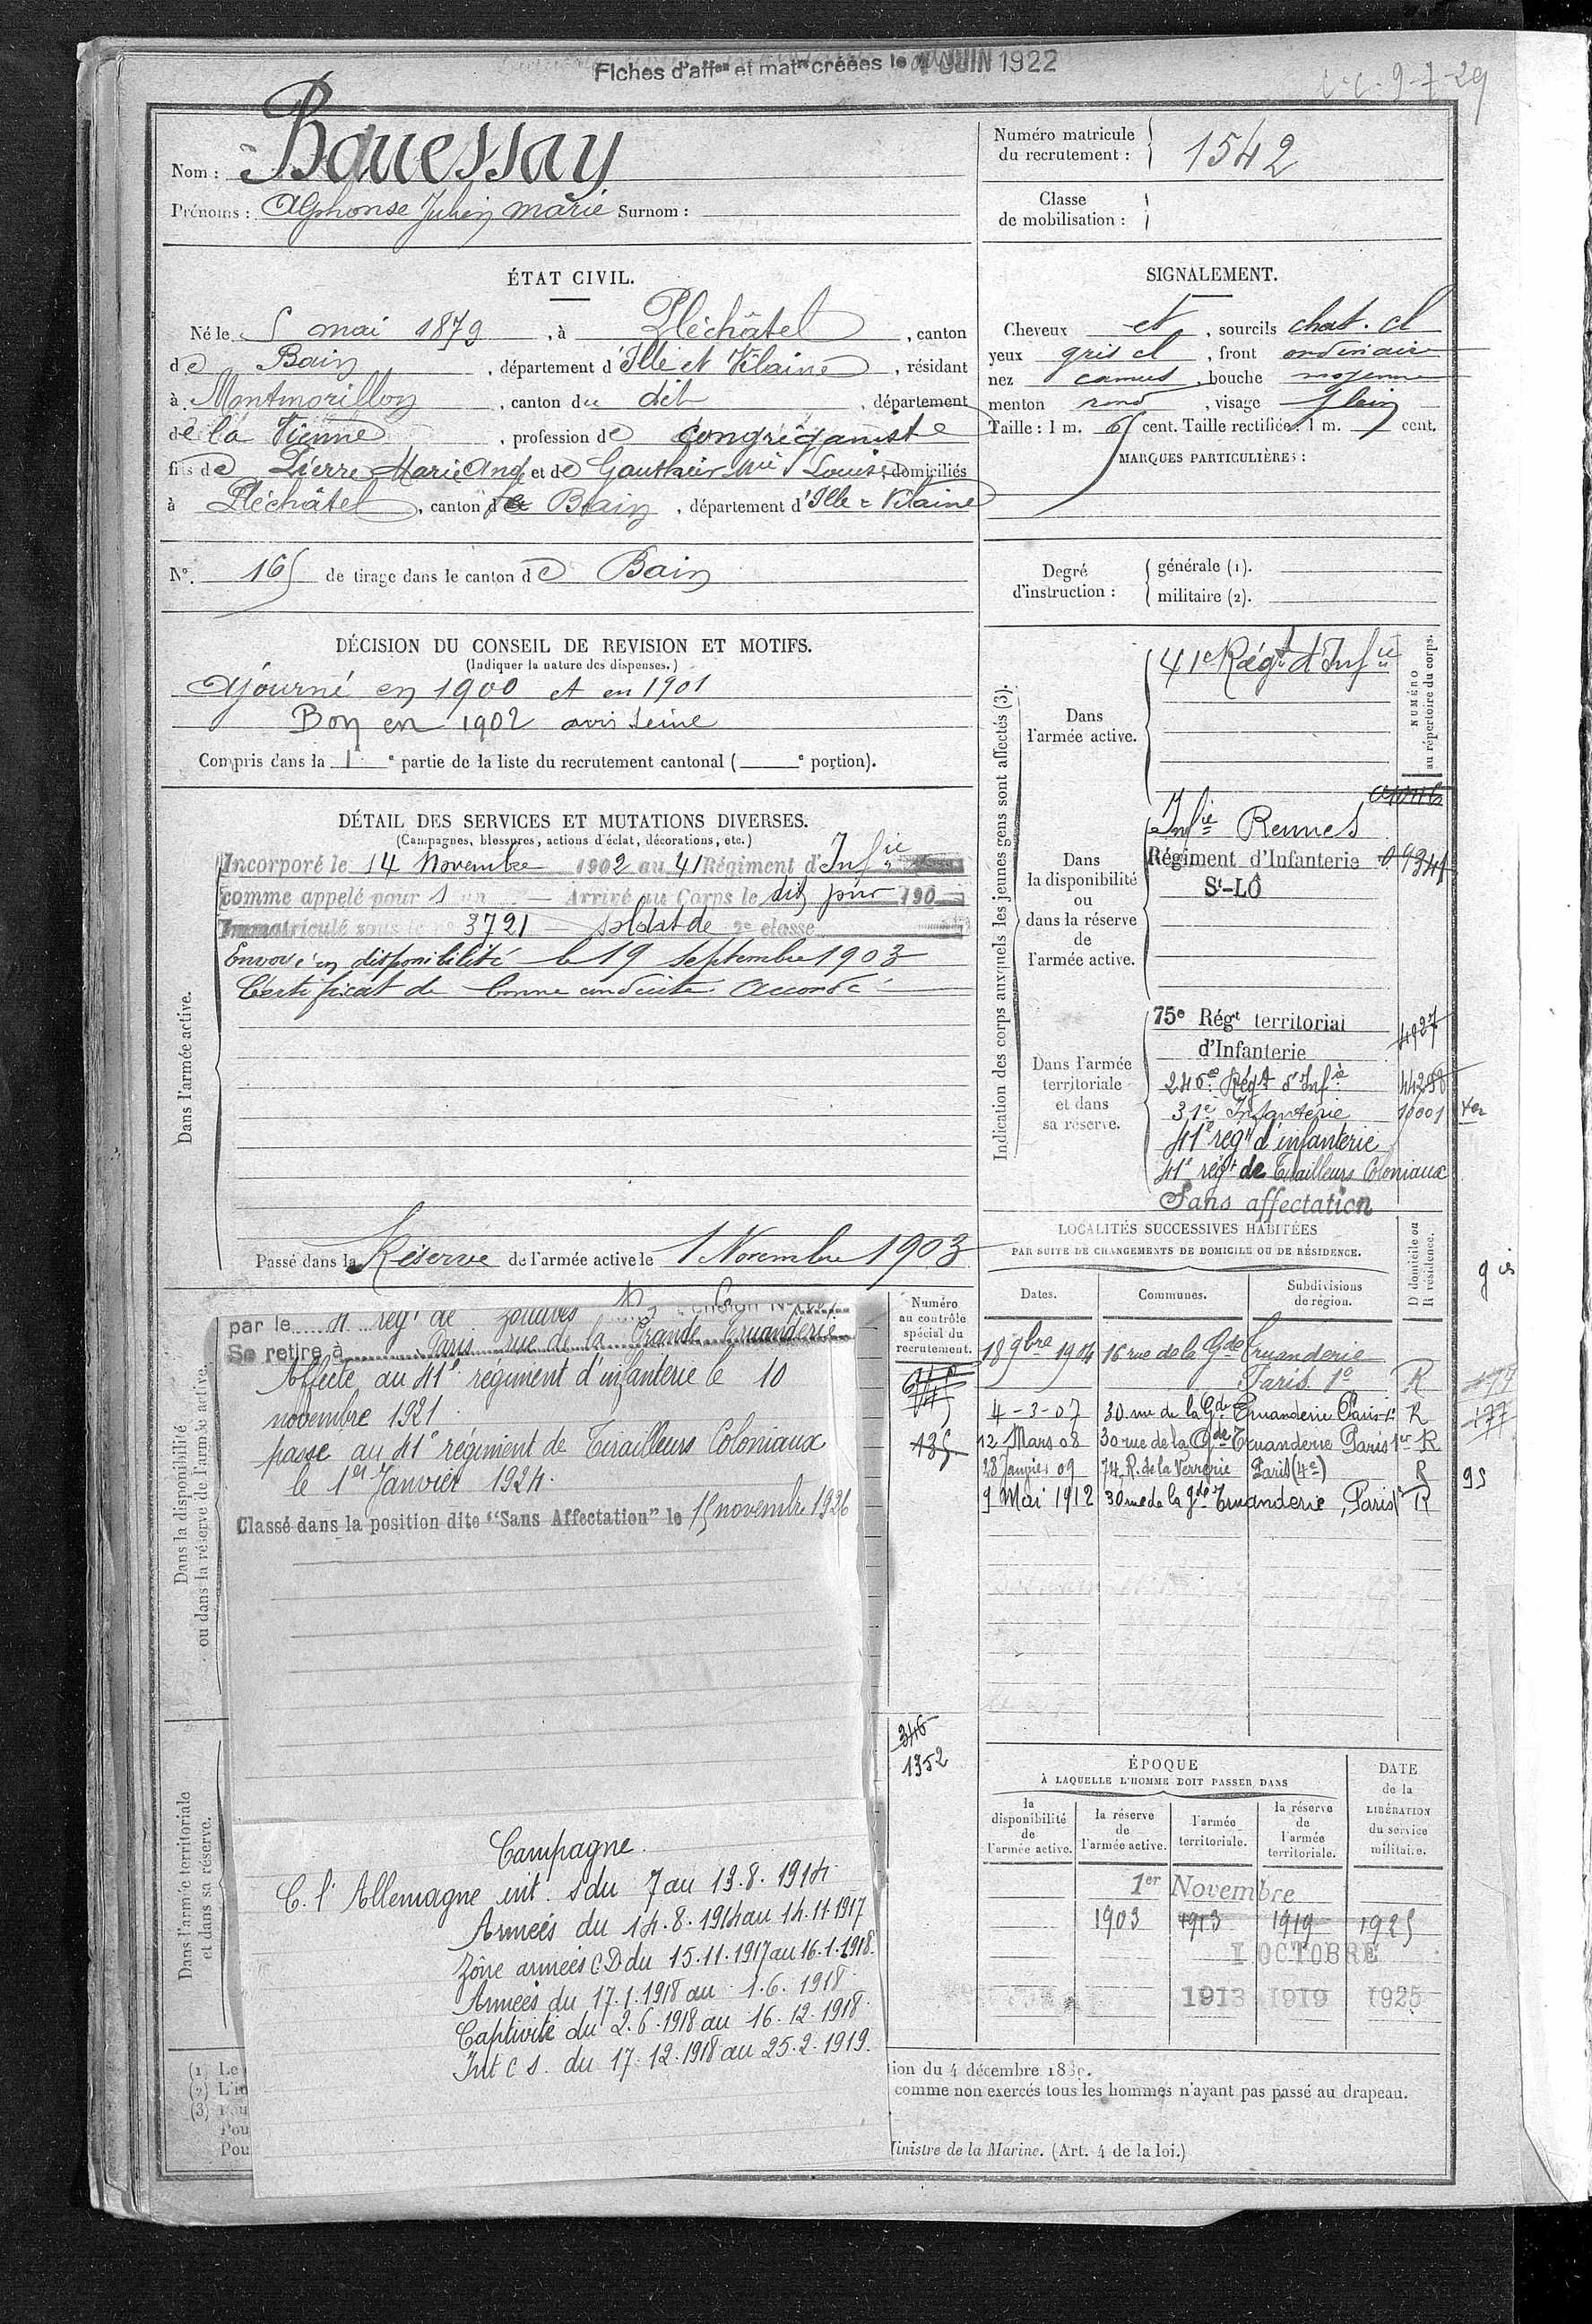 Fiches d'affon et matre créées le 1 JUIN 1922
9-7-29
Nom : Bouessay
Prénoms : Alphonse Julien Marie Surnom :
Numéro matricule du recrutement : 1542
Classe de mobilisation :
ÉTAT CIVIL.
Né le 5 mai 1879, à Pléchâtel, canton
de Bain, département d'Ille et Vilaine, résidant
à Montmorillon, canton du dit, département
de la Vienne, profession de Congréganiste
fils de Pierre Marie Ange et de Gauthier Mie Louise, domiciliés
à Pléchâtel, canton de Bain, département d'Ille = Vilaine
SIGNALEMENT.
Cheveux et, sourcils chat. cl
yeux gris cl, front ordinaire
nez camus, bouche moyenne
menton rond, visage plein
Taille : 1 m. 65 cent. Taille rectifiée : 1 m. cent.
MARQUES PARTICULIÈRES :
N°. 165 de tirage dans le canton de Bain
Degré d'instruction :
générale (1).
militaire (2).
DÉCISION DU CONSEIL DE REVISION ET MOTIFS.
(Indiquer la nature des dispenses.)
Ajourné en 1900 et en 1901
Bon en 1902 avis Seine
Compris dans la 1e partie de la liste du recrutement cantonal ( e portion).
DÉTAIL DES SERVICES ET MUTATIONS DIVERSES.
(Campagnes, blessures, actions d'éclat, décorations, etc.)
Dans l'armée active.
Incorporé le 14 Novembre 1902 au 41 Régiment d'Infie
comme appelé pour 1 an — Arrivé au Corps le dit jour 190
Immatriculé sous le n° 3721 — soldat de 2e classe
Envoyé en disponibilité le 19 septembre 1903
Certificat de bonne conduite Accordé
Passé dans la Réserve de l'armée active le 1 Novembre 1903
Indication des corps auxquels les jeunes gens sont affectés (3).
NUMÉRO au répertoire du corps.
Dans l'armée active.
41e Régt d'Infie
Dans la disponibilité ou dans la réserve de l'armée active.
Infie Rennes
Régiment d'Infanterie
St-LÔ
Dans l'armée territoriale et dans sa réserve.
75e Régt territorial 4927
d'Infanterie
246e Régt d'Infie 44298
31e Infanterie 10001
41e régt d'infanterie
41e régt de Tirailleurs Coloniaux
Sans affectation
LOCALITÉS SUCCESSIVES HABITÉES
PAR SUITE DE CHANGEMENTS DE DOMICILE OU DE RÉSIDENCE.
Dates. Communes. Subdivisions de région. D domicile ou R résidence.
18 9bre 1904 16 rue de la Gde Truanderie
Paris 1e R 177
4-3-07 30 rue de la Gde Truanderie Paris 1e R 177
12 Mars 08 30 rue de la Gde Truanderie Paris 1er R
28 Janvier 09 74 R. de la Verrerie Paris (4e) R 95
9 Mai 1912 30 rue de la gde Truanderie, Paris 1e R
Dans la disponibilité ou dans la réserve de l'armée active.
Numéro au contrôle spécial du recrutement.
135
par le 4 régt de Zouaves
Se retire à Paris rue de la Grande Truanderie
Affecté au 41e régiment d'infanterie le 10
novembre 1921
passe au 41e régiment de Tirailleurs Coloniaux
le 1er Janvier 1924.
Classé dans la position dite "Sans Affectation" le 15 novembre 1926
346
1352
Dans l'armée territoriale et dans sa réserve.
Campagne.
C. l'Allemagne int. s du 7 au 13.8.1914
Armées du 14.8.1914 au 14.11.1917
Zône armées C D du 15.11.1917 au 16.1.1918.
Armées du 17.1.1918 au 1.6.1918
Captivité du 2.6.1918 au 16.12.1918.
Int c s. du 17.12.1918 au 25.2.1919.
ÉPOQUE
À LAQUELLE L'HOMME DOIT PASSER DANS
la disponibilité de l'armée active.
la réserve de l'armée active.
l'armée territoriale.
la réserve de l'armée territoriale.
DATE de la LIBÉRATION du service militaire.
1er Novembre
1903 1913 1919 1925
1 OCTOBRE
1913 1919 1925
(1) Le
(2) L'in
(3) Pou
Pou
Pou
tion du 4 décembre 18
comme non exercés tous les hommes n'ayant pas passé au drapeau.
Ministre de la Marine. (Art. 4 de la loi.)